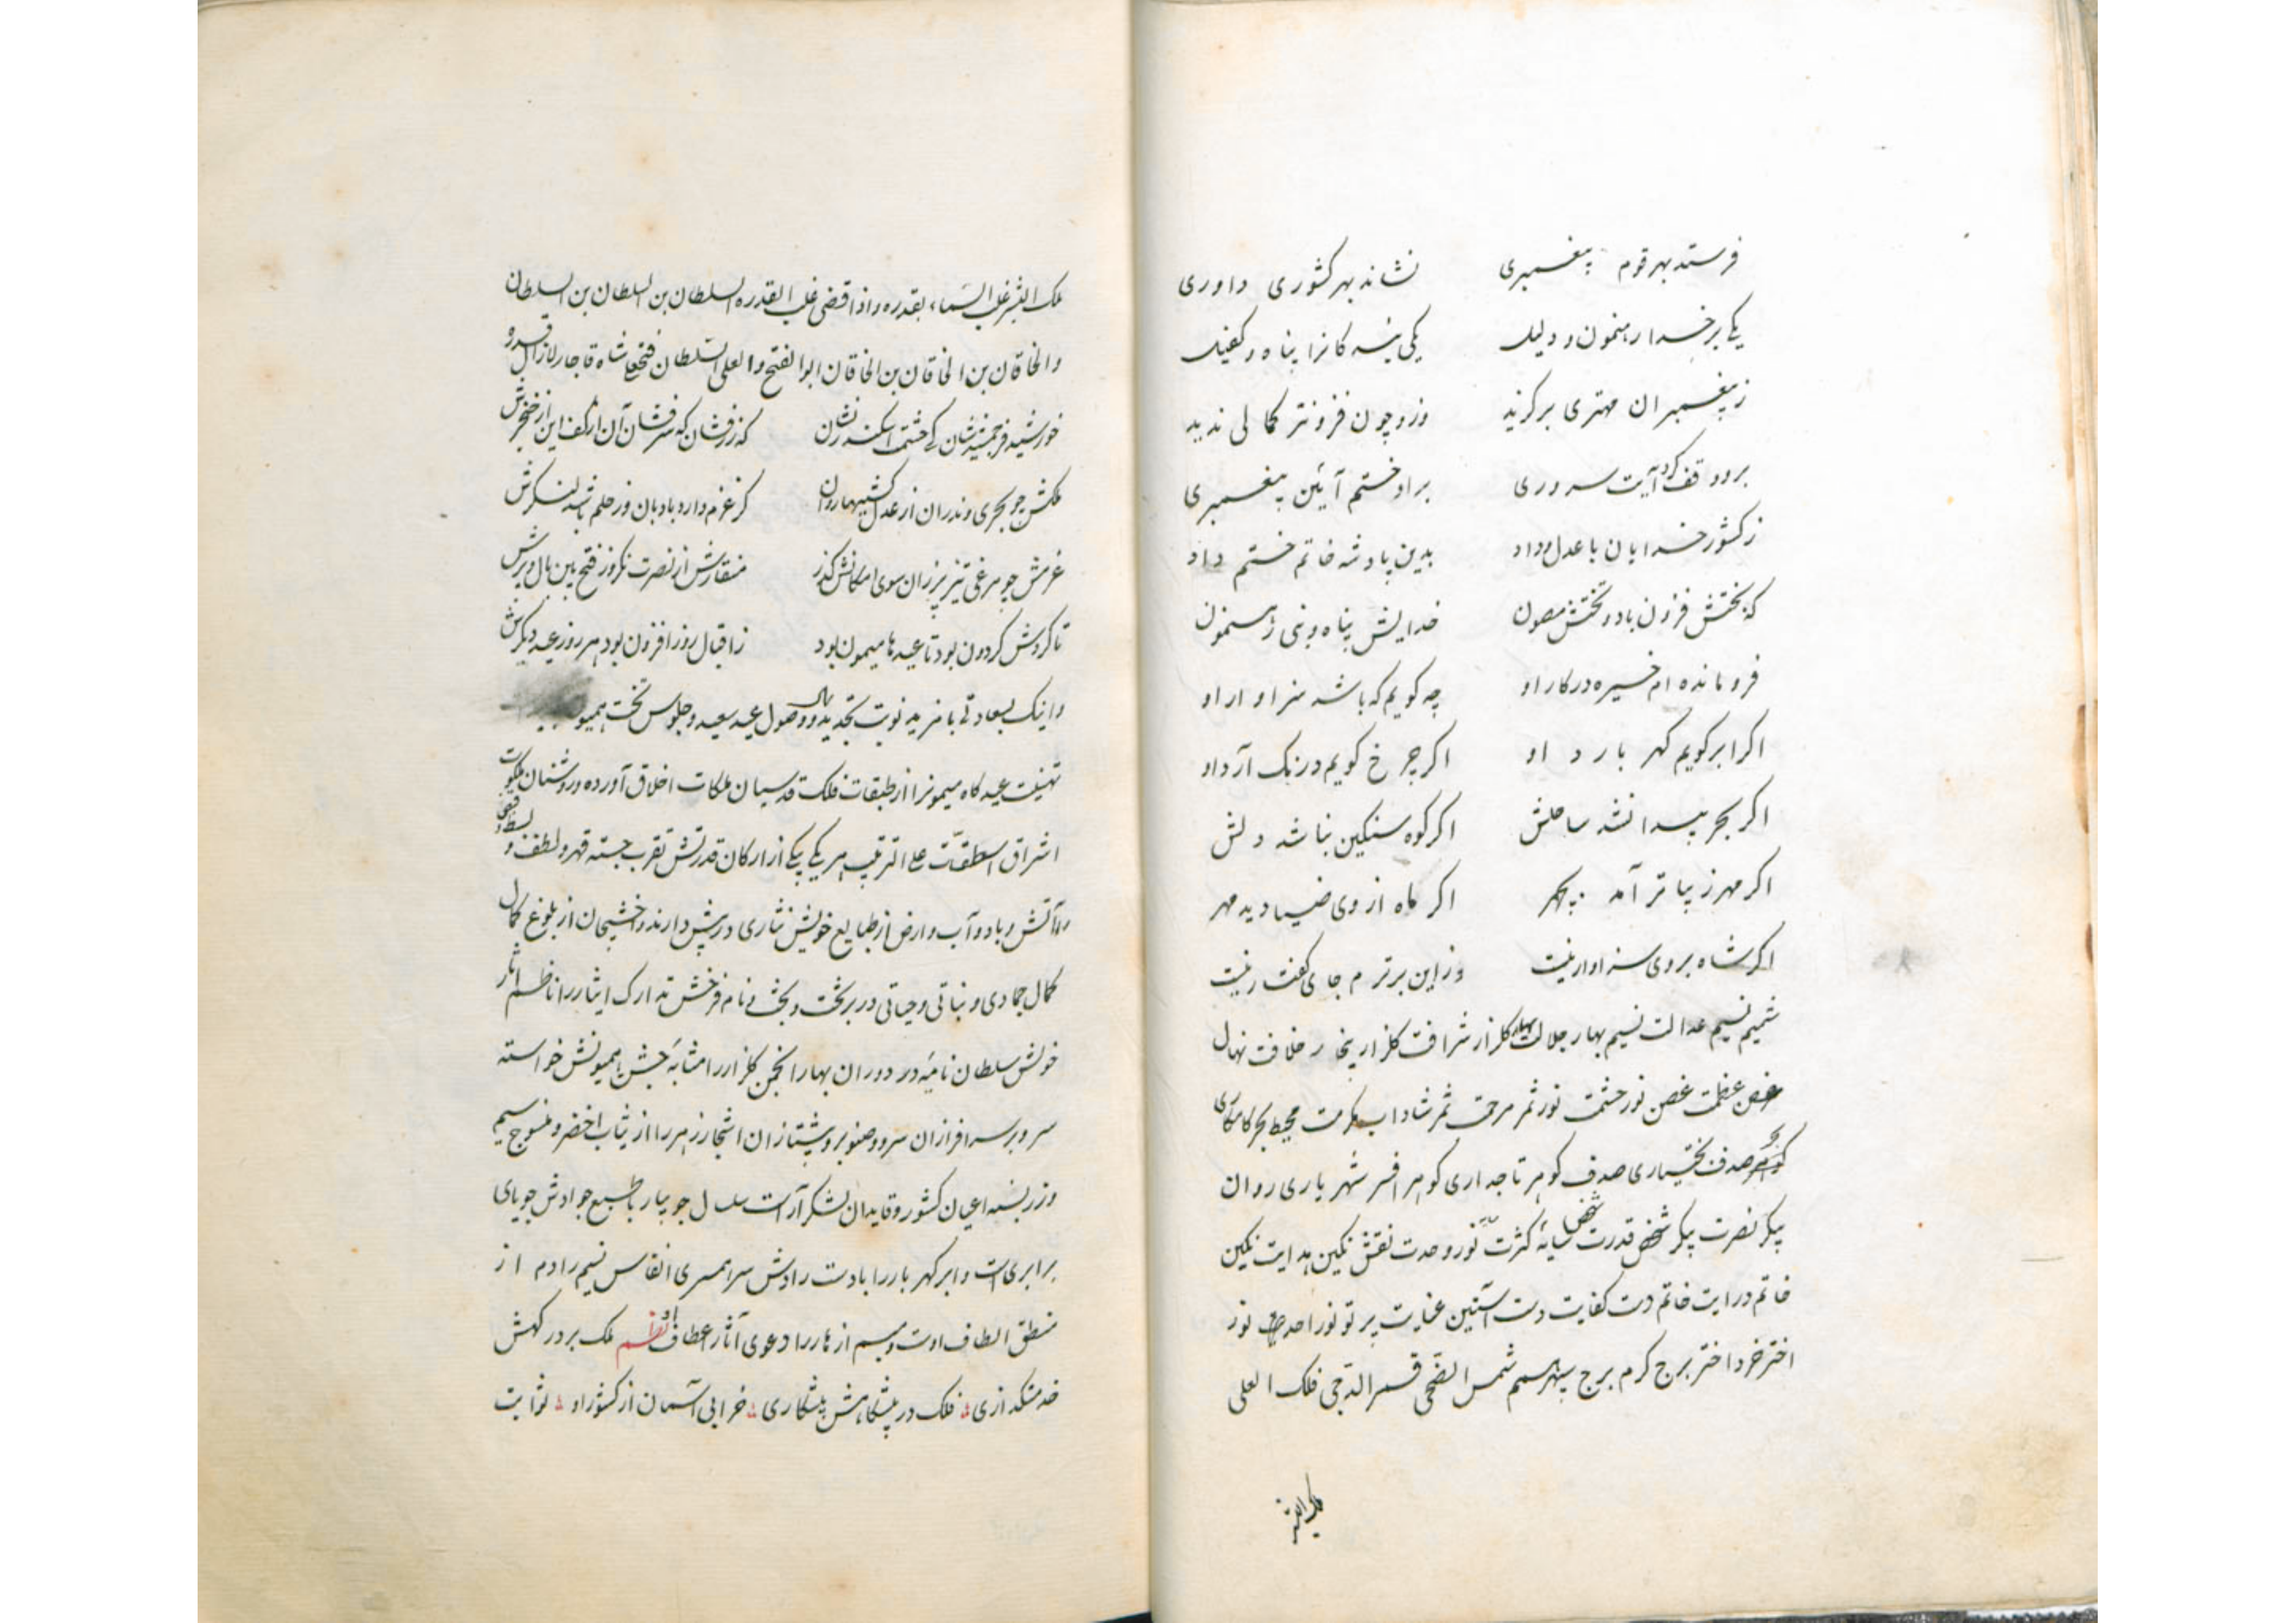 فرستد بهر قوم پیغمبری نشاند بهر کشوری داوری
یکی بر خدا رهنمون و دلیل یکی بندکانرا پناه و کفیل
ز پیغمبران مهتری برکزید وزو چون فزونتر کمالی ندید
برو وقف کرد آیت سروری براو ختم آئین پیغمبری
ز کشور خدایان با عدل و داد بدین پادشه خاتم ختم داد
که بختش فزون باد و تختش مصون خدایش پناه و نبی رهنمون
فرومانده ام خیره در کار او چه کویم که باشد سزاوار او
اکر ابر کویم کهر بارد او اکر چرخ کویم درنک آرد او
اکر بحر پیدا نشد ساحلش اکر کوه سنکین نباشد دلش
اکر مهر زیباتر آمد بچهر اکر ماه از وی ضیا دید مهر
اکر شاه بروی سزاوار نیست وزاین برترم جای کفتار نیست
شمیم نسیم عدالت نسیم بهار جلالت بهار کلزار شرافت کلزار خلافت نهال
غصن عظمت غصن نور حشمت نور ثمر مرحمت ثمر شاداب مکرمت محیط بحر کامکاری
صدف بختیاری صدف کوهر تاجداری کوهر افسر شهریاری روان
پیکر نصرت پیکر شخص قدرت شخص سایه کثرت نور وحدت نقش نکین هدایت نکین
خاتم درایت خاتم دست کفایت دست آستین عنایت پرتو نور احد نور
اختر خرد اختر برج کرم برج سپهر شمس الضحی قمر الدجی فلک العلی
ملک البشر
ملک البشر علی السماء بقدره واذا قضی غلب القدره السلطان بن السلطان بن السلطان
والخاقان بن الخاقان بن الخاقان ابوالفتح والعلی السلطان فتحعلی شاه قاجار لازال
خورشید فر جمشید شان کی حشمت اسکندر نشان که زرفشان که سرفشان آن از کف این از خنجرش
ملکش چو بحری وندران از عدل کشتیها روان کز عزم دارد بادبان وز حلم باشد لنکرش
عزمش چو مرغی تیز پر زان سوی امکانش کذر منقارش از نصرت نکر وز فتح بین بال و پرش
تا کردش کردون بود تا عید ها میمون بود ز اقبال روز افزون بود هر روز عید دیکرش
واینک بسعادتی با مزید نوبت تجدید سال و وصول عید سعید و جلوس تخت همیون
تهنیت عید کاه میمونرا از طبقات فلک قدسیان ملکات اخلاق آورده و روشنان ملکوت
اشراق اسطقسات علی الترتیب هر یکی بیکی از ارکان قدرتش تقرب جسته قهر و لطف و
را آتش و باد و آب و ارض از طبایع خویش نثاری در پیش دارند و اخشیجان از بلوغ کمال
کمال جمادی و نباتی و حیاتی در بر تخت و بخت و نام فرخش تدارک ایثار را ناظم آثار
خویش سلطان نامیه در دوران بهار انجمن کلزار را مشابه جشن همیونش خواسته
سر و بر سرافرازان سرو و صنوبر و پیشتازان اشجار زهر را از ثیاب اخضر و منسوج سیم
و زر بسته اعیان کشور و قایدان لشکر آراست سلسال جویبار با طبع جوادش جویای
برابری است و ابر کهر بار را با دست رادش سر همسری انفاس نسیم را دم از
منطق الطاف اوست و بسم ازهار را دعوی آثار اعطاف او نظم ملک بر در کهش
خدمتکذاری فلک در پیشکاهش پیشکاری خرابی آسمان از کشور او ثوابت